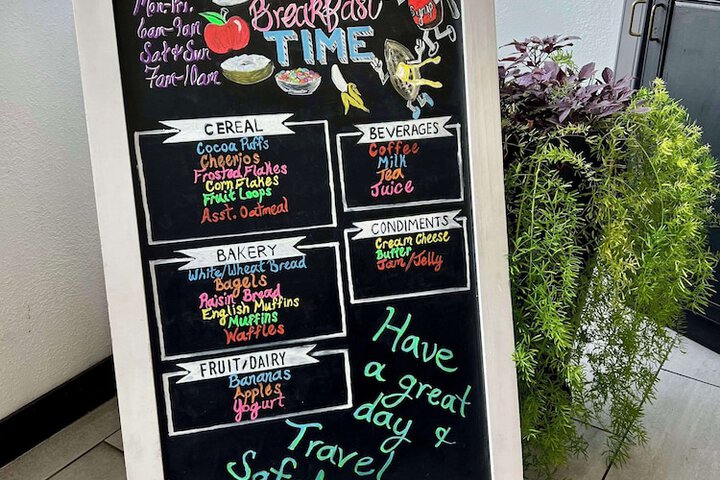 Mon.-Fri.
6am-9am
Sat & Sun
7am-10am
Breakfast
TIME
Syrup
CEREAL
Cocoa Puffs
Cheerios
Frosted Flakes
Corn Flakes
Fruit Loops
Asst. Oatmeal
BAKERY
White/Wheat Bread
Bagels
Raisin Bread
English Muffins
Muffins
Waffles
FRUIT/DAIRY
Bananas
Apples
Yogurt
BEVERAGES
Coffee
Milk
Tea
Juice
CONDIMENTS
Cream Cheese
Butter
Jam/Jelly
Have
a great
day &
Travel
Safely